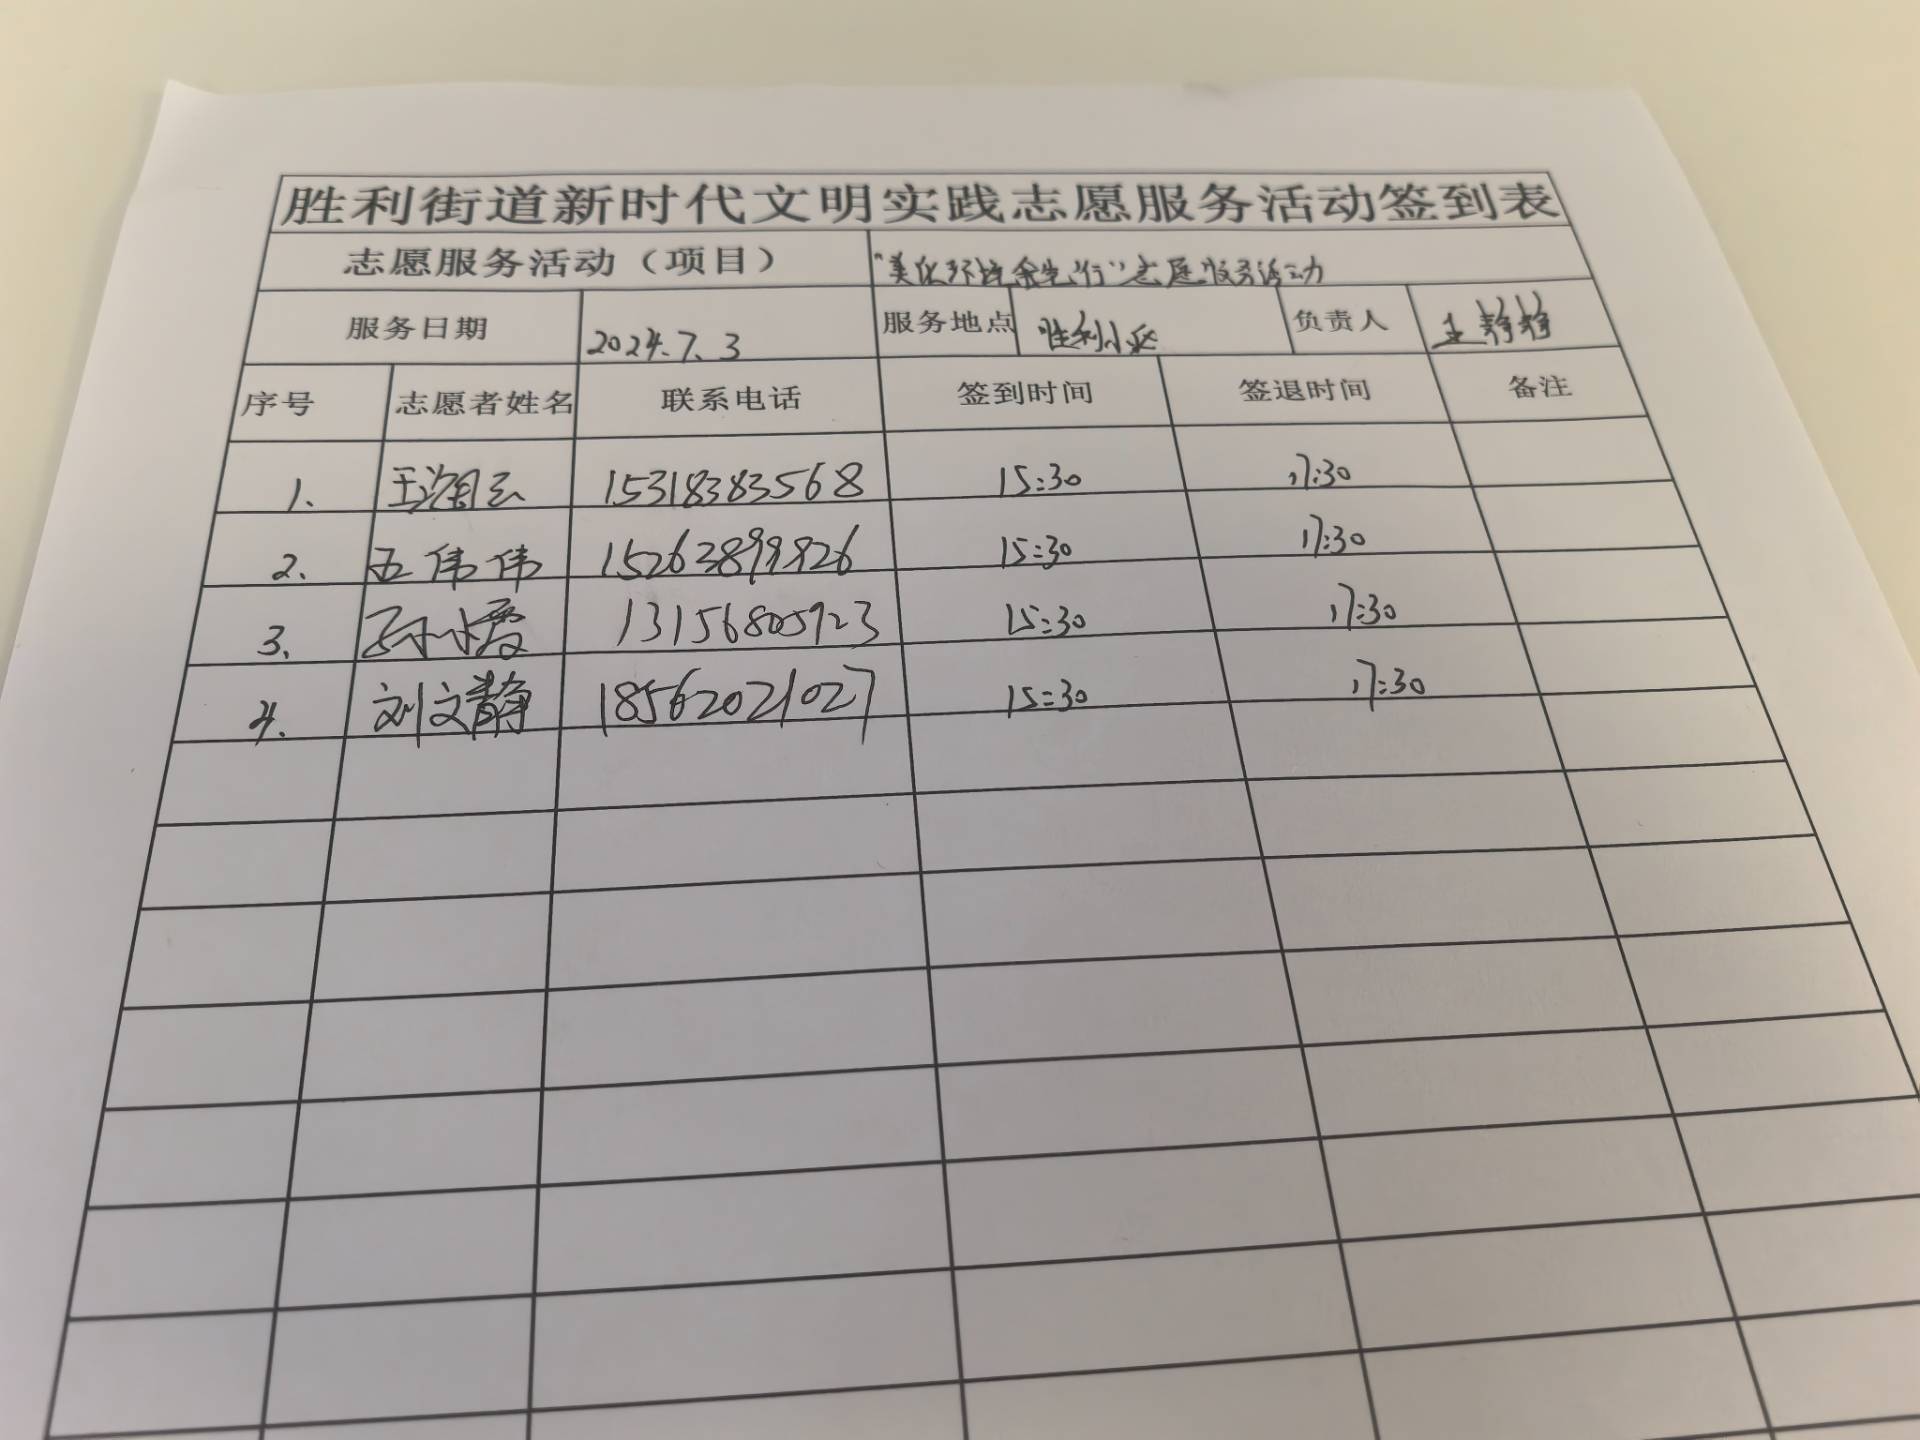 胜利街道新时代文明实践志愿服务活动签到表
志愿服务活动（项目） “美化环境 先行”志愿服务活动
服务日期 2024.7.3 服务地点 胜利小区 负责人 王静静
序号 志愿者姓名 联系电话 签到时间 签退时间 备注
1. 王 15318383568 15:30 17:30
2. 王伟伟 15263899826 15:30 17:30
3. 孙小霞 13156805923 15:30 17:30
4. 刘文静 18562021027 15:30 17:30